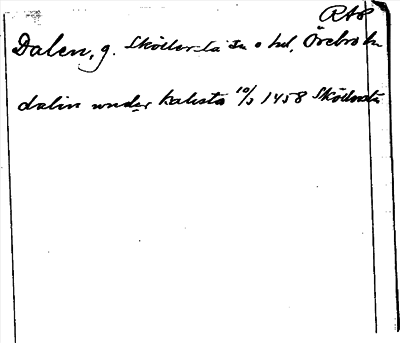 RAP
Dalen, g. Sköllersta sn o hd, Örebro län
dalin under halesta 10/3 1458 Sköllersta